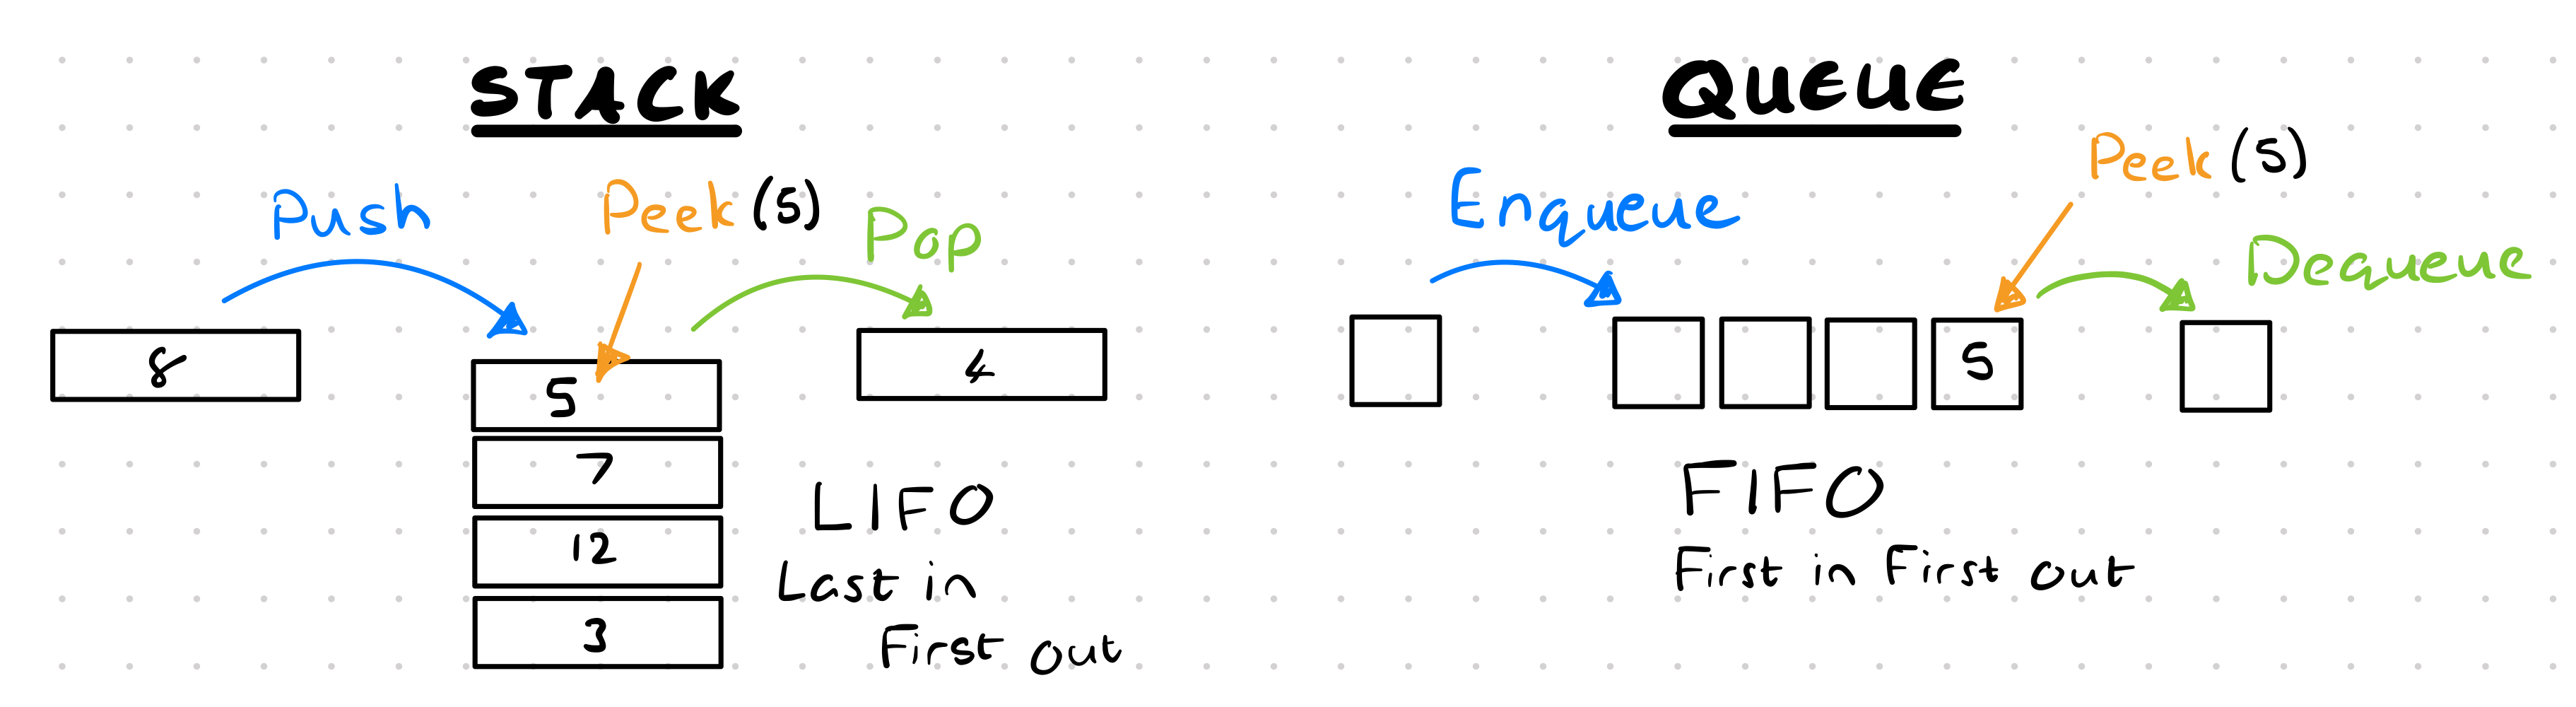 STACK
Push
Peek (5)
Pop
8
5
4
7
12
3
LIFO
Last in
First out
QUEUE
Enqueue
Peek (5)
Dequeue
5
FIFO
First in First out